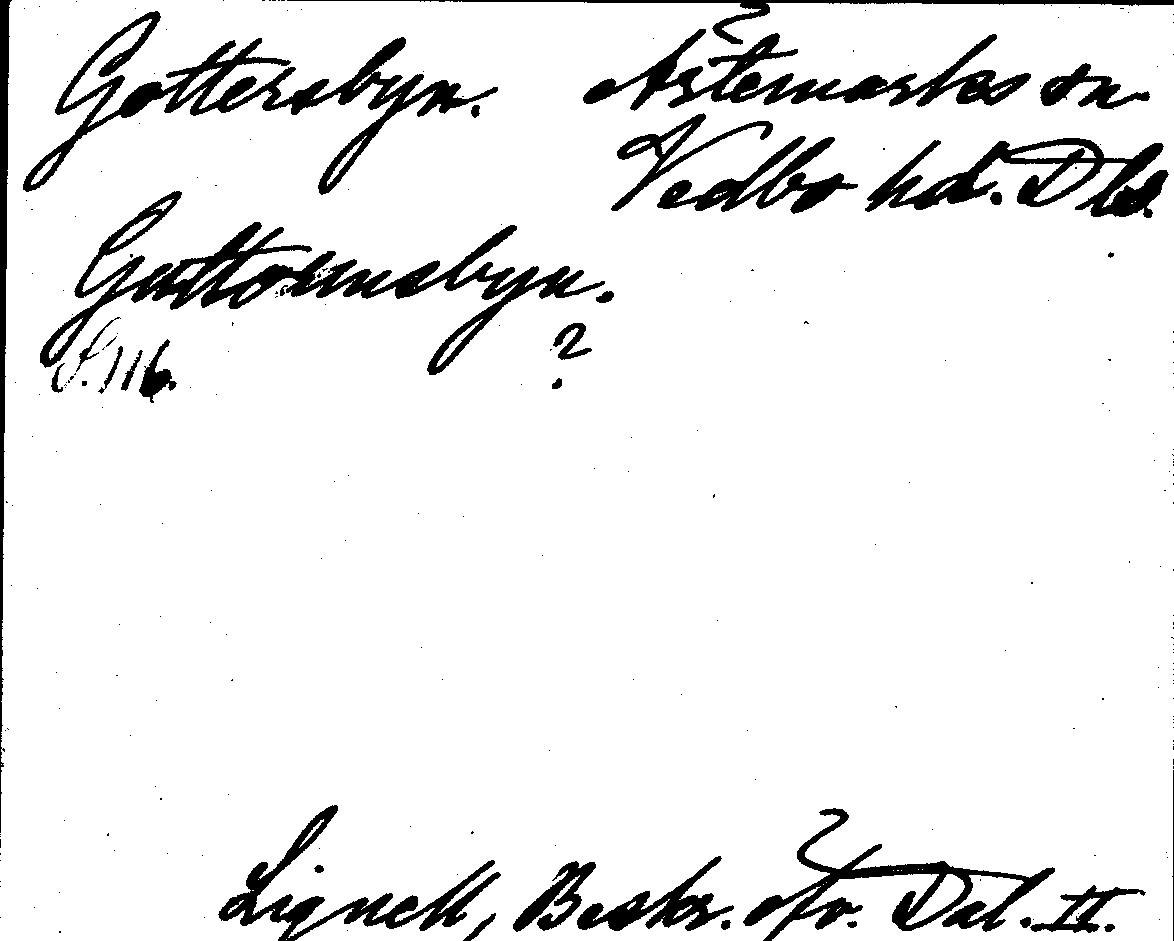 Gottersbyn. Ärtemarks sn.
Vedbo hd. Dld.
Guttormsbyn.
S. 116. ?
Lignell, Beskr. öfv. Dal. II.